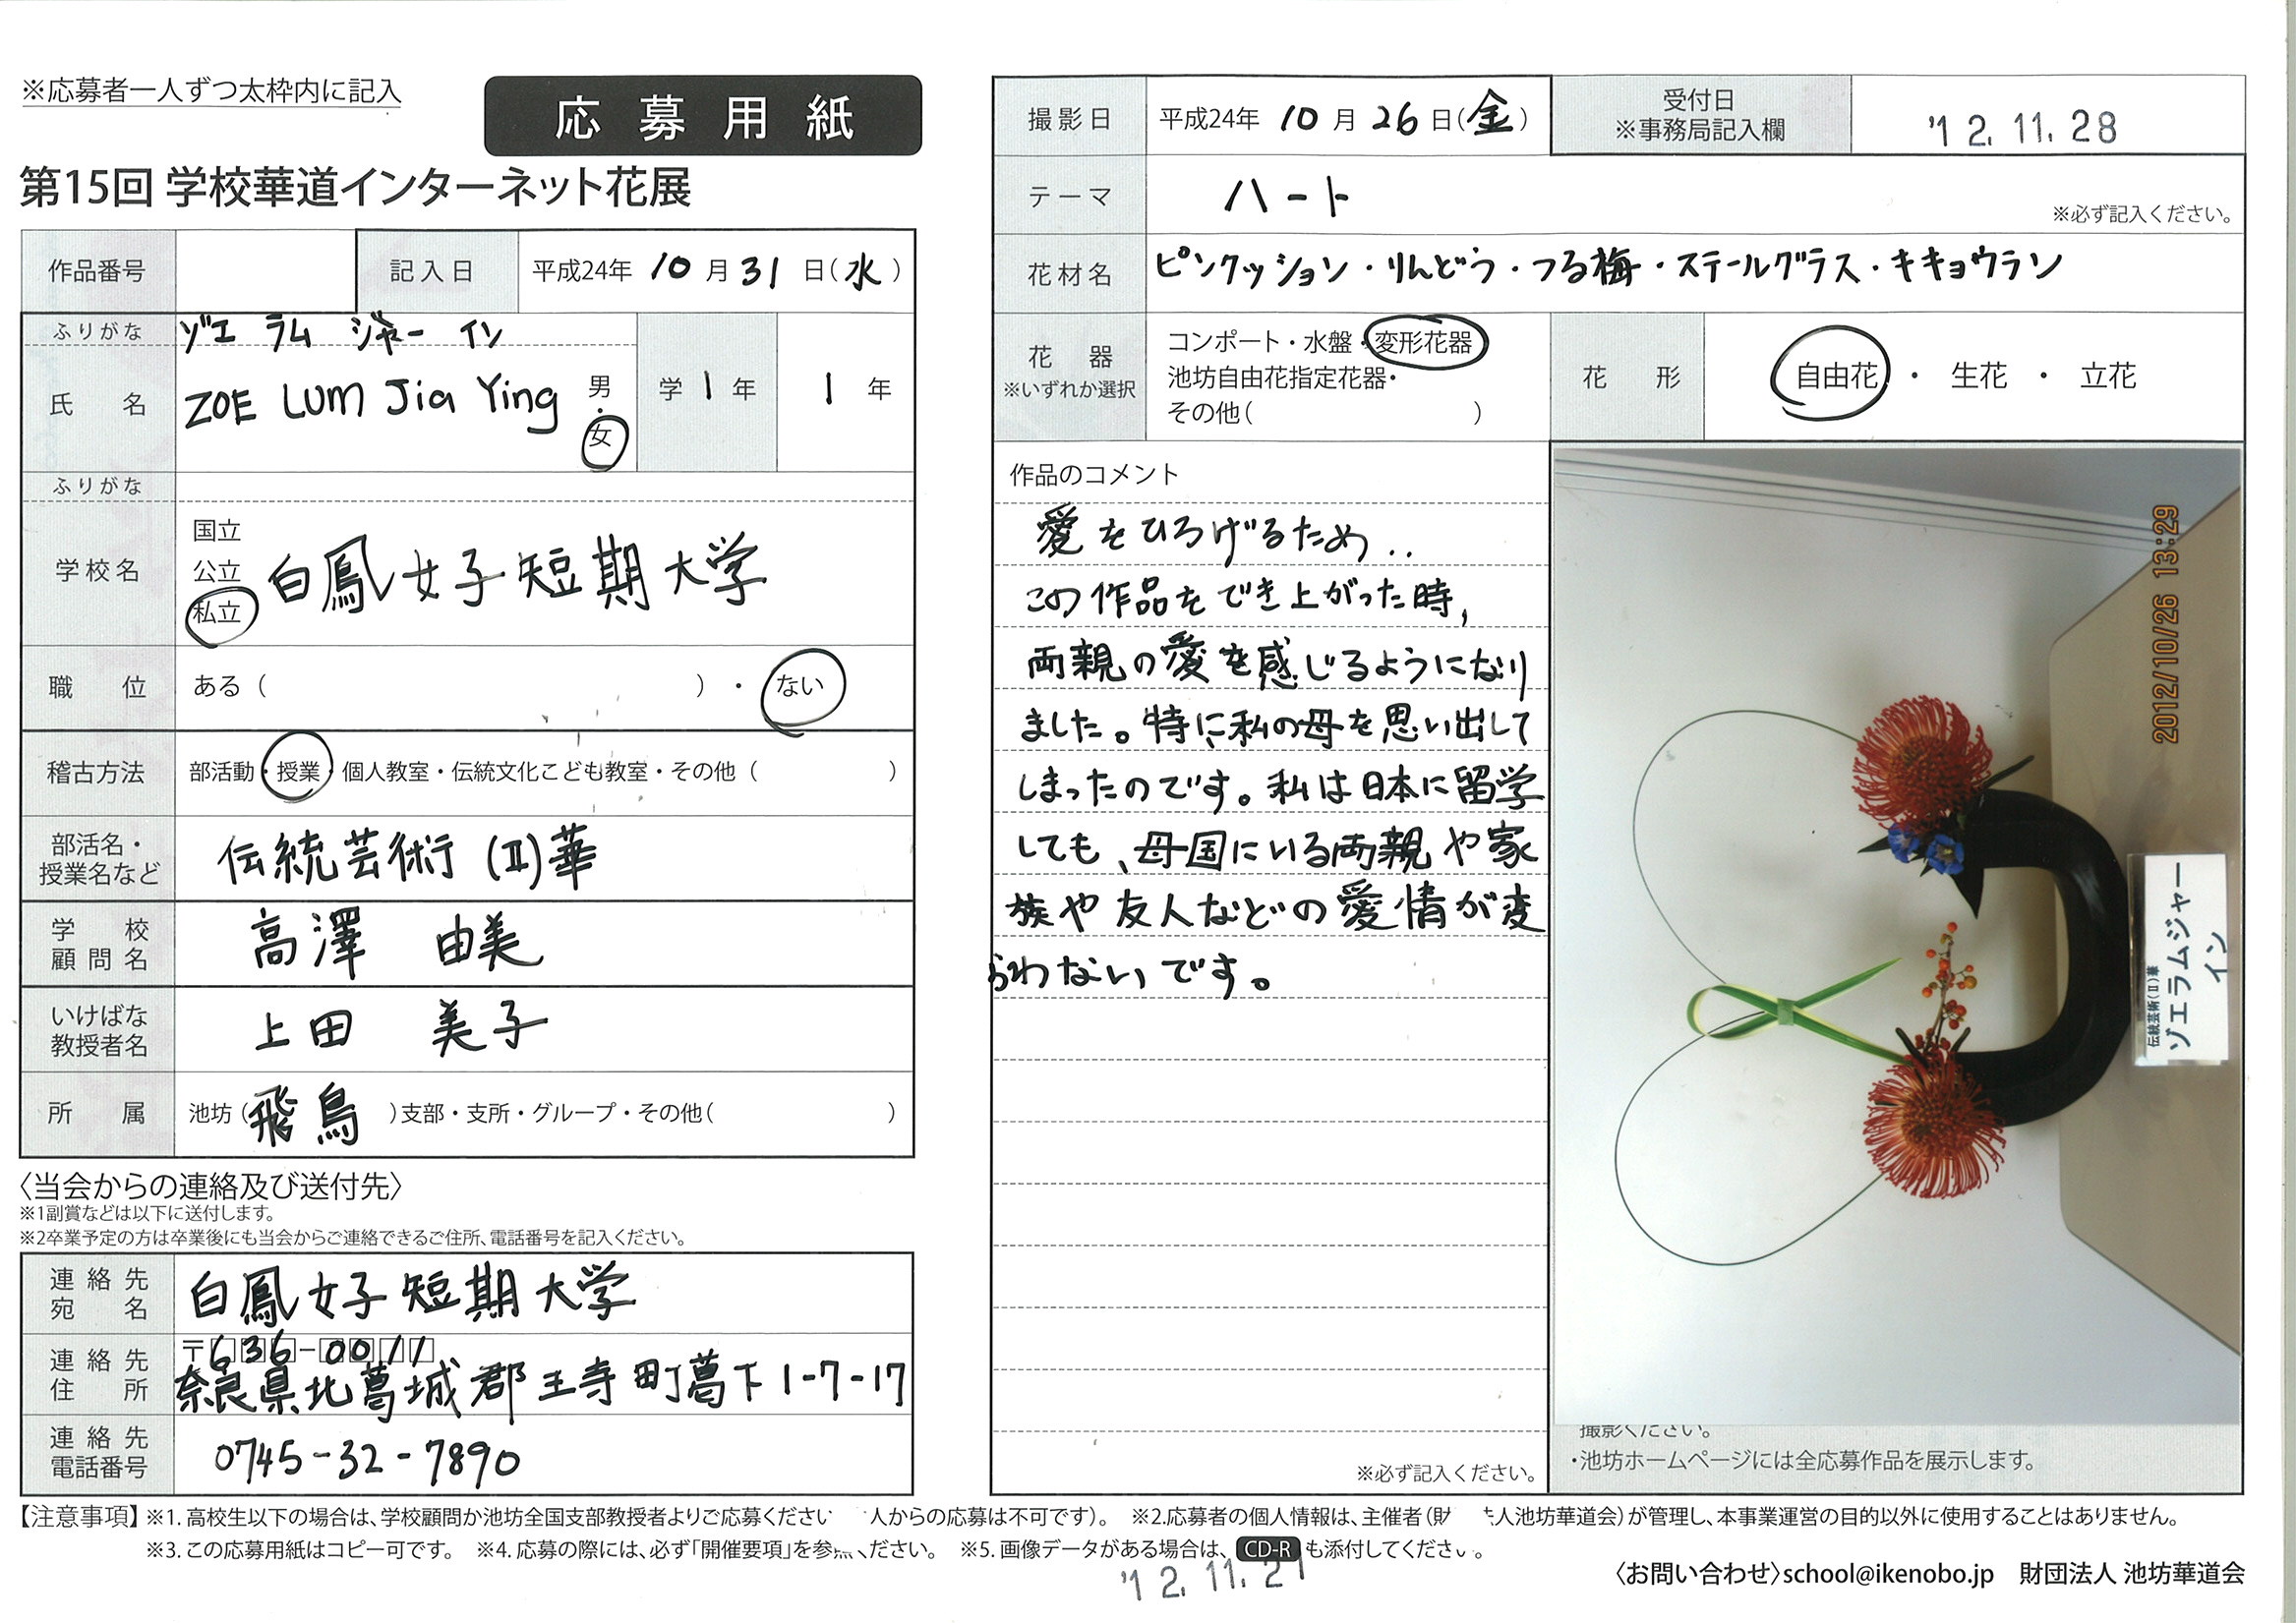 ※応募者一人ずつ太枠内に記入
応募用紙
第15回 学校華道インターネット花展
作品番号
記入日 平成24年 10月 31日(水)
ふりがな ゾエ ラム ジャー イン
氏名 ZOE Lum Jia Ying 男・女
学1年 1年
ふりがな
学校名 国立 公立 私立 白鳳女子短期大学
職位 ある( )・ない
稽古方法 部活動・授業・個人教室・伝統文化こども教室・その他( )
部活名・授業名など 伝統芸術(Ⅱ)華
学校顧問名 高澤 由美
いけばな教授者名 上田 美子
所属 池坊(飛鳥)支部・支所・グループ・その他( )
〈当会からの連絡及び送付先〉
※1副賞などは以下に送付します。
※2卒業予定の方は卒業後にも当会からご連絡できるご住所、電話番号を記入ください。
連絡先宛名 白鳳女子短期大学
連絡先住所 〒636-0011
奈良県北葛城郡王寺町葛下1-7-17
連絡先電話番号 0745-32-7890
撮影日 平成24年 10月 26日(金)
受付日 ※事務局記入欄 '12.11.28
テーマ ハート
※必ず記入ください。
花材名 ピンクッション・りんどう・つる梅・スチールグラス・キキョウラン
花器 ※いずれか選択
コンポート・水盤・変形花器
池坊自由花指定花器・
その他( )
花形 自由花・生花・立花
作品のコメント
愛をひろげるため‥
この作品をでき上がった時,
両親の愛を感じるようになり
ました。特に、私の母を思い出して
しまったのです。私は日本に留学
しても、母国にいる両親や家
族や友人などの愛情が変
らわないです。
※必ず記入ください。
2012/10/26 13:29
伝統芸術(Ⅱ)華
ゾエラムジャー
イン
撮影ください。
・池坊ホームページには全応募作品を展示します。
【注意事項】※1. 高校生以下の場合は、学校顧問か池坊全国支部教授者よりご応募ください 人からの応募は不可です)。 ※2.応募者の個人情報は、主催者(財 人池坊華道会)が管理し、本事業運営の目的以外に使用することはありません。
※3. この応募用紙はコピー可です。 ※4. 応募の際には、必ず「開催要項」を参 ください。 ※5. 画像データがある場合は、CD-Rも添付してください。
'12.11.21
〈お問い合わせ〉school@ikenobo.jp 財団法人 池坊華道会